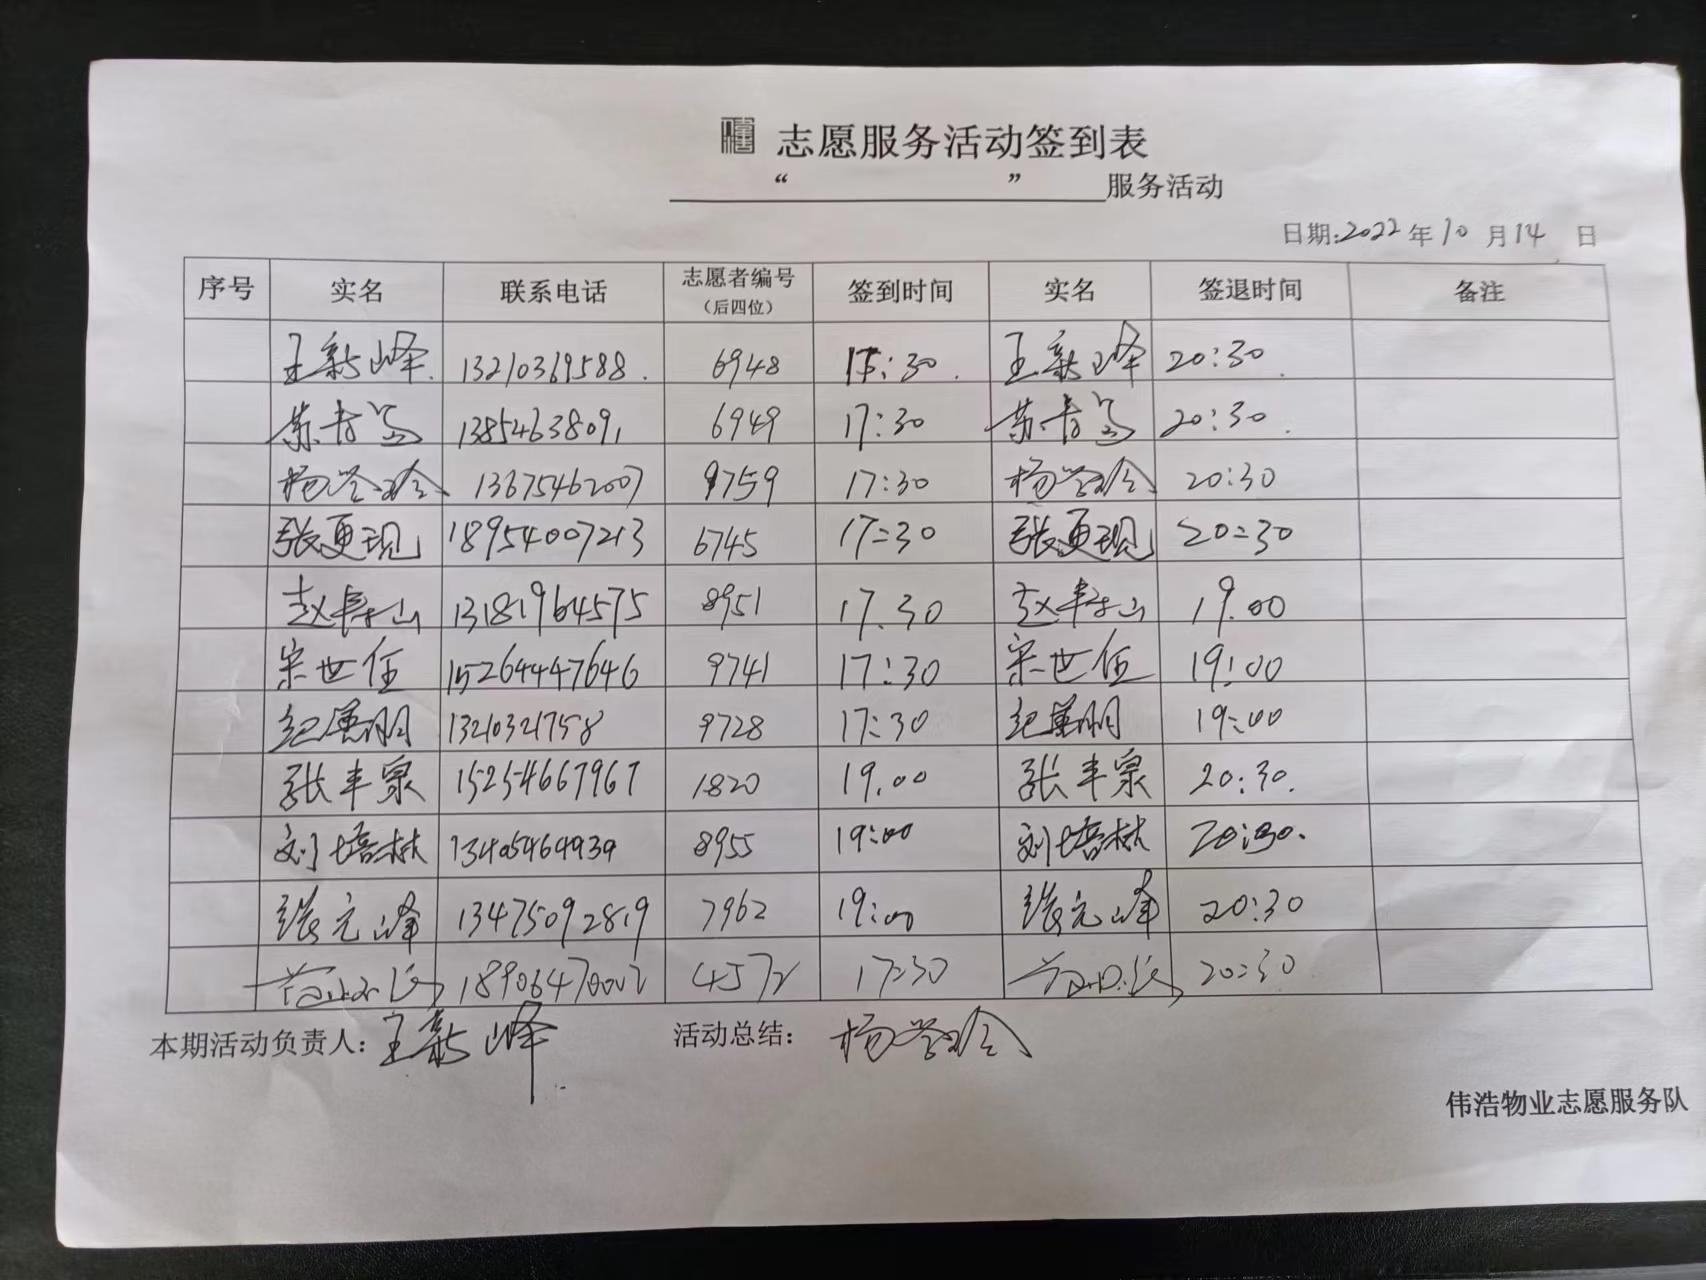 志愿服务活动签到表
“ ”服务活动
日期:2022年10月14日
序号 实名 联系电话 志愿者编号（后四位） 签到时间 实名 签退时间 备注
王新峰 13210369588 6948 17:30 王新峰 20:30
苏 13854638091 6949 17:30 苏 20:30
杨学玲 13675462007 9759 17:30 杨学玲 20:30
张更现 18954007213 6745 17:30 张更现 20:30
赵寿山 13181964575 8951 17.30 赵寿山 19.00
宋世伍 15264447646 9741 17:30 宋世伍 19:00
纪 明 13210321758 9728 17:30 纪 明 19:00
张丰泉 15254667967 1820 19.00 张丰泉 20:30.
刘培林 13405464939 8955 19:00 刘培林 20:30.
张元峰 13475092819 7962 19:00 张元峰 20:30
4572 17:30 20:30
本期活动负责人:王新峰 活动总结: 杨学玲
伟浩物业志愿服务队